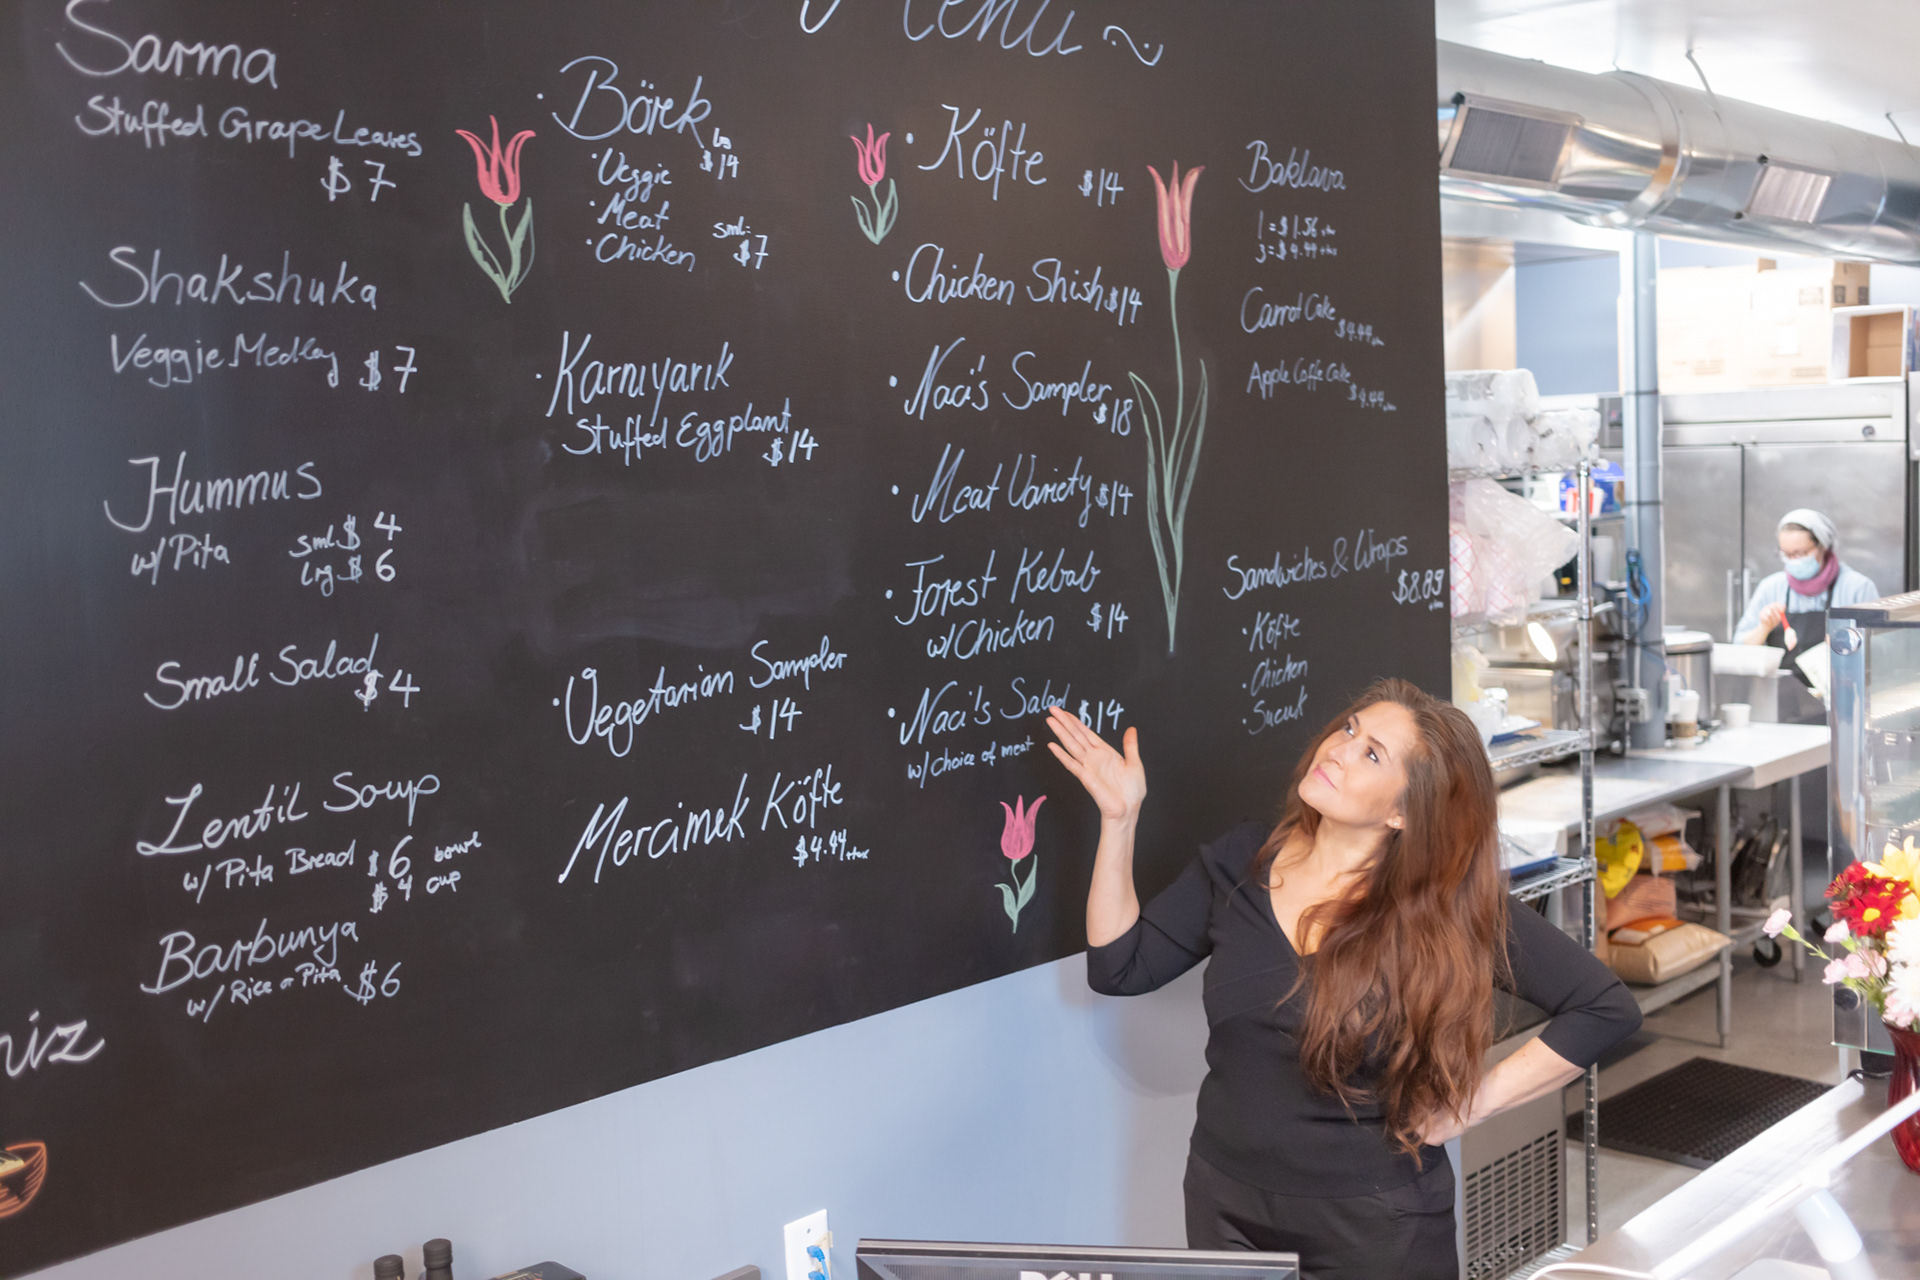 Menu ~
Sarma
Stuffed Grape Leaves
$7
Shakshuka
Veggie Medley $7
Hummus
w/ Pita sml $4
lrg $6
Small Salad
$4
Lentil Soup
w/ Pita Bread $6 bowl
$4 cup
Barbunya
w/ Rice or Pita $6
niz
· Börek
lg
$14
· Veggie
· Meat
· Chicken
sml:
$7
· Karnıyarık
Stuffed Eggplant
$14
· Vegetarian Sampler
$14
Mercimek Köfte
$4.44 +tax
· Köfte $14
· Chicken Shish $14
· Naci's Sampler
$18
· Meat Variety $14
· Forest Kebab
w/ Chicken $14
· Naci's Salad $14
w/ choice of meat
Baklava
1 = $1.56 +tax
3 = $4.44 +tax
Carrot Cake
$4.44 +tax
Apple Coffe Cake
$4.44 +tax
Sandwiches & Wraps
$8.89
+tax
· Köfte
· Chicken
· Sucuk
DELL